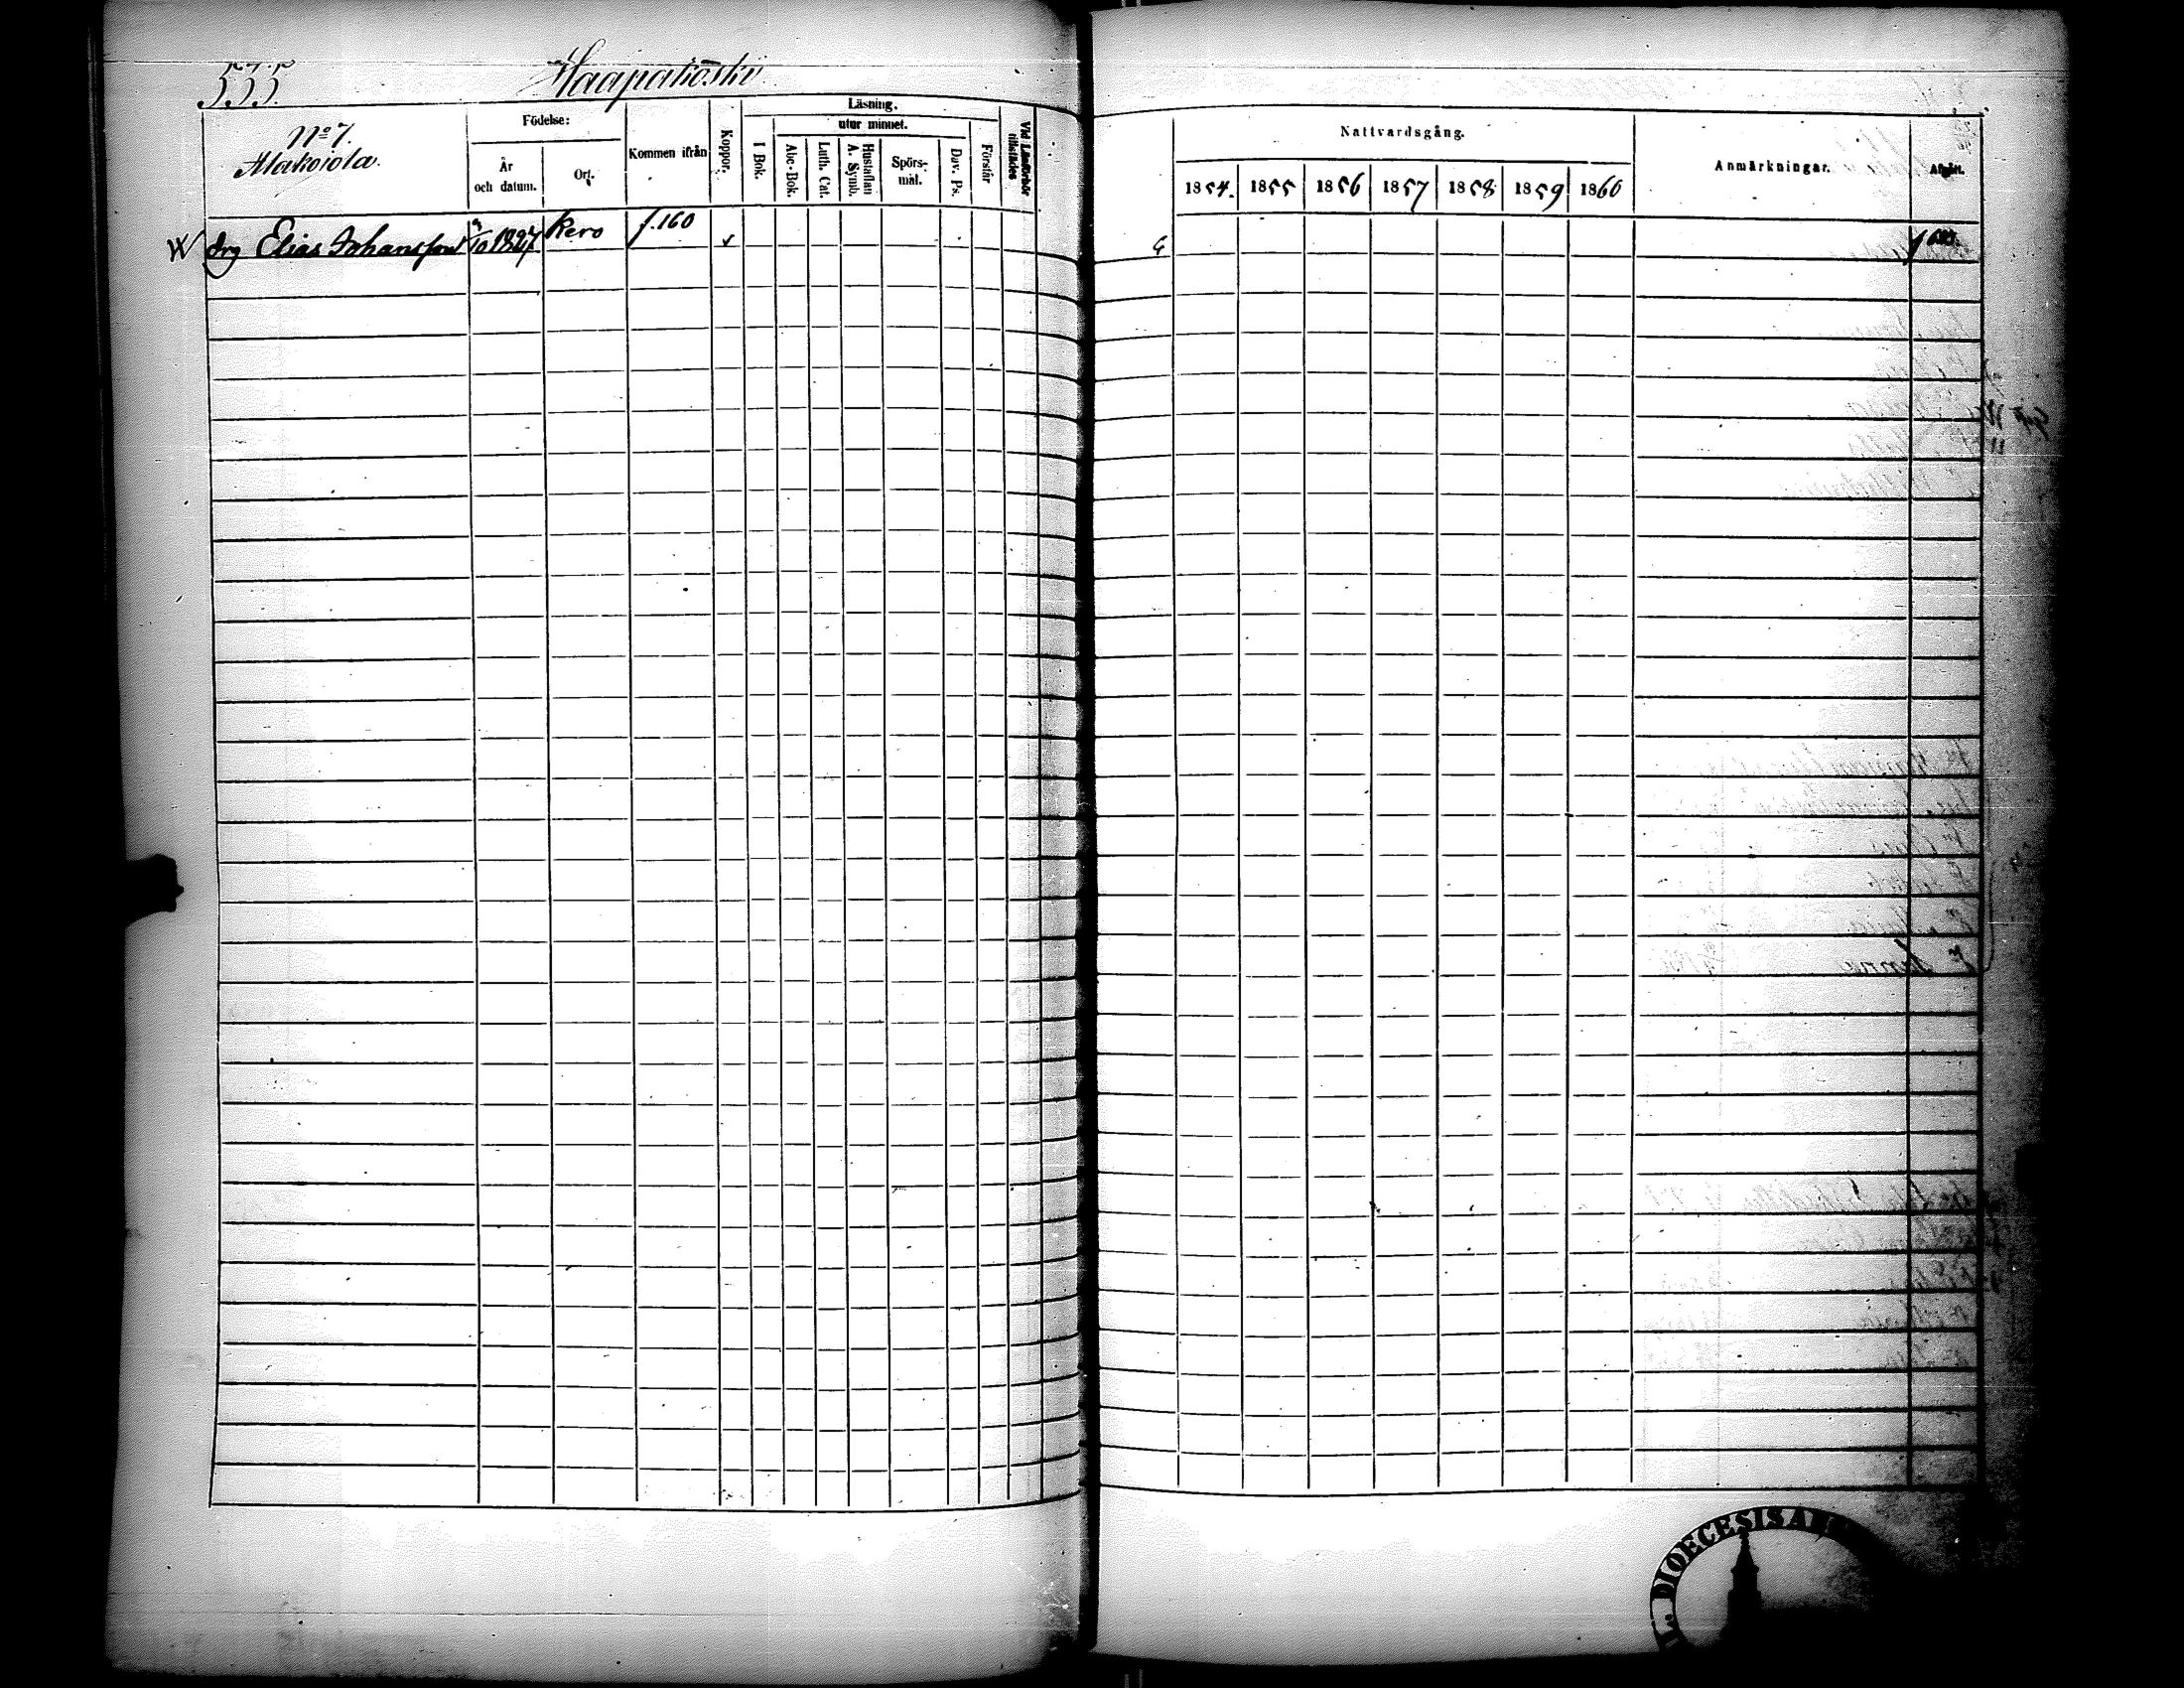 535 Haapakoski
No 7.
Makoiola.
Födelse:
År och datum.
Ort.
Kommen ifrån
Koppor.
Läsning.
I Bok.
utur minnet.
Abc-Bok.
Luth. Cat.
Hustaflan A. Symb.
Spörs-mål.
Dav. Ps.
Förstår
Vid Läsförhör tillstädes
Nattvardsgång.
1854. 1855 1856 1857 1858 1859 1860
Anmärkningar.
Afgått.
W drg Elias Johansson 1827 Kero f. 160 G
DIOECESIS